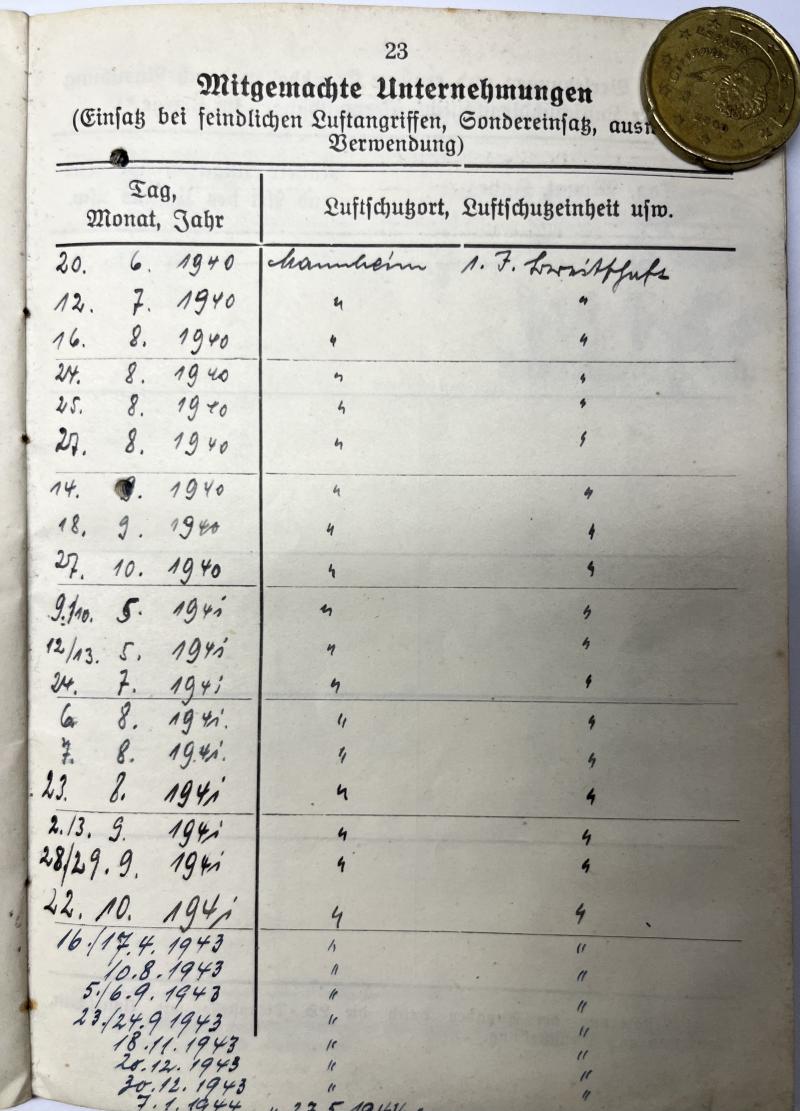 23
Mitgemachte Unternehmungen
(Einsatz bei feindlichen Luftangriffen, Sondereinsatz, ausw
Verwendung)
Tag,
Monat, Jahr
Luftschutzort, Luftschutzeinheit usw.
20. 6. 1940 Mannheim 1. F. Bereitschaft
12. 7. 1940 " "
16. 8. 1940 " "
24. 8. 1940 " "
25. 8. 1940 " "
27. 8. 1940 " "
14. 1940 " "
18. 9. 1940 " "
27. 10. 1940 " "
9./10. 5. 1941 " "
12/13. 5. 1941 " "
24. 7. 1941 " "
6. 8. 1941. " "
7. 8. 1941. " "
23. 8. 1941 " "
2./3. 9. 1941 " "
28/29. 9. 1941 " "
22. 10. 1941 " "
16./17.4. 1943 " "
10.8.1943 " "
5./6.9. 1943 " "
23./24.9 1943 " "
18.11.1943 " "
20.12.1943 " "
30.12.1943 " "
7.1.1944 27.5.1944
ESPAÑA